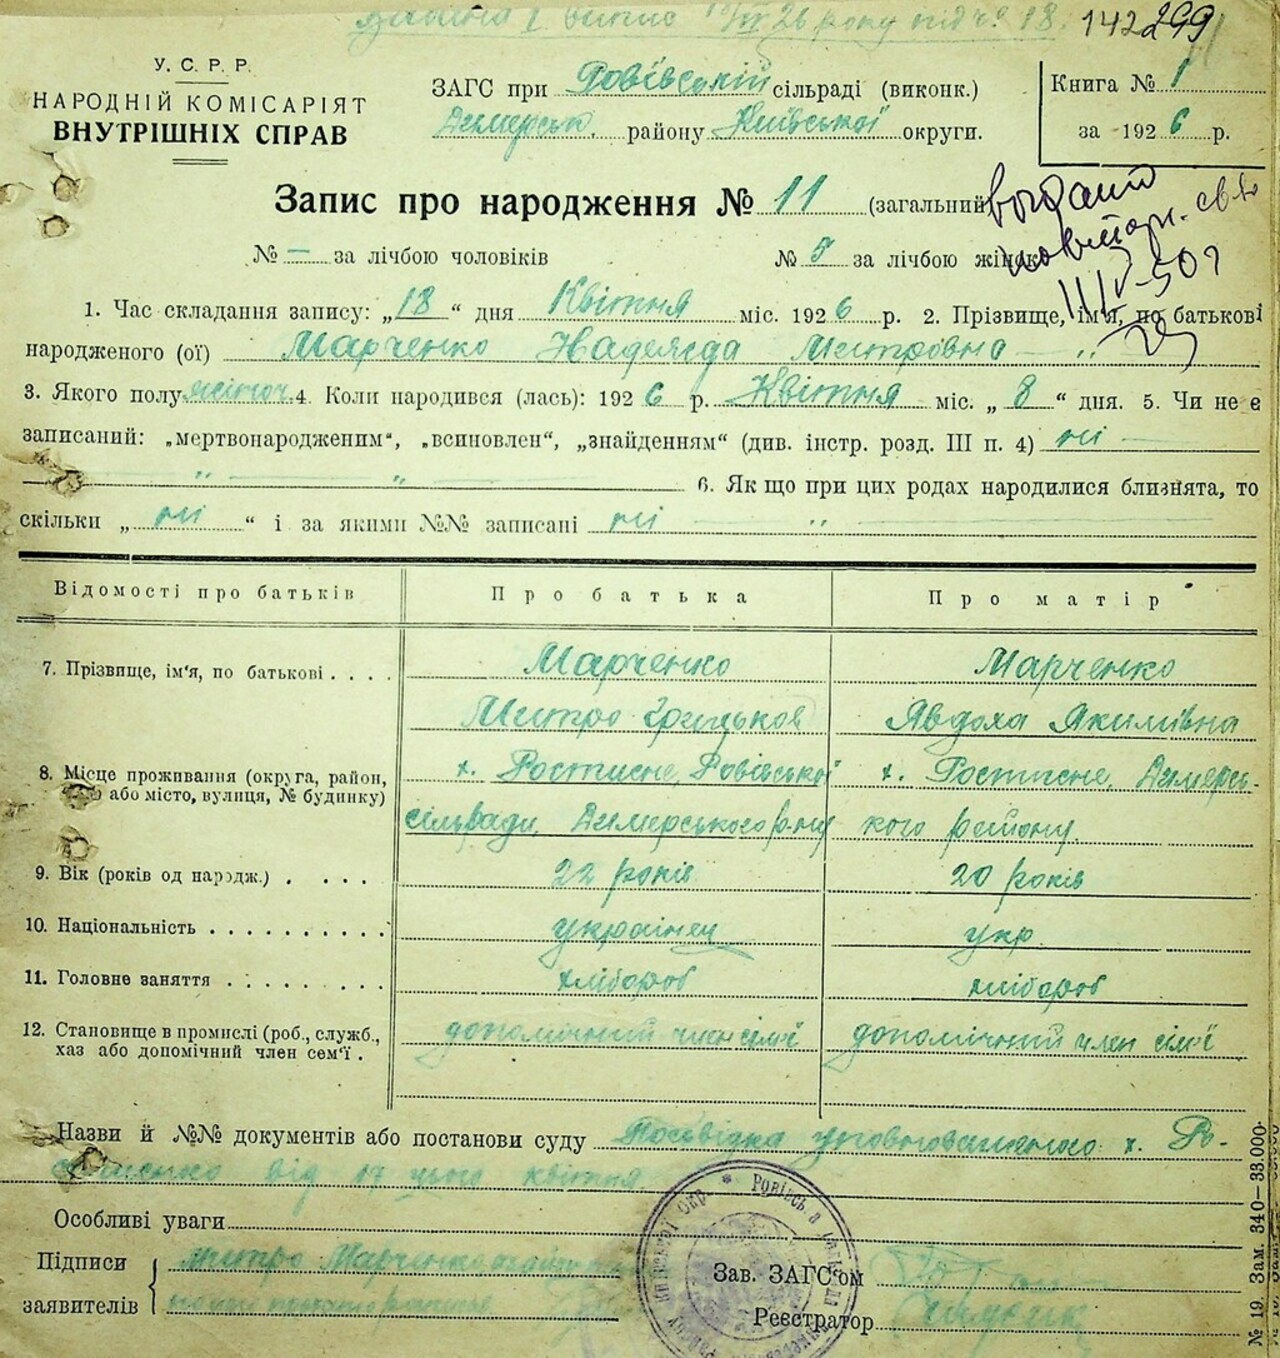 видана I випис 26 року під ч. 18.
142 299
У. С. Р. Р.
НАРОДНІЙ КОМІСАРІЯТ
ВНУТРІШНІХ СПРАВ
ЗАГС при Ровівській сільраді (виконк.)
Димерськ. району Київської округи.
Книга № 1
за 1926 р.
Запис про народження № 11 (загальний)
№ — за лічбою чоловіків № 5 за лічбою жінок
1. Час складання запису: „18“ дня Квітня міс. 1926 р. 2. Прізвище, ім'я, по батькові
народженого (ої) Марченко Надежда Митрівна — „
3. Якого полу жіноч. 4. Коли народився (лась): 1926 р. Квітня міс. „8“ дня. 5. Чи не є
записаний: „мертвонародженим“, „всиновлен“, „знайденням“ (див. інстр. розд. III п. 4) ні —
— „ — „ — 6. Як що при цих родах народилися близнята, то
скільки „ні“ і за якими №№ записані ні — „ —
Відомості про батьків Про батька Про матір
7. Прізвище, ім'я, по батькові . . . . Марченко Марченко
Митро Грицьков Явдоха Якимівна
8. Місце проживання (округа, район, х. Ростисне, Ровівської х. Ростисне, Димерсь-
або місто, вулиця, № будинку) сільради, Димерського р-ну кого району.
9. Вік (років од народж.) . . . . 22 років 20 років
10. Національність . . . . . . . . . . українец укр.
11. Головне заняття . . . . . . . . хлібороб хлібороб
12. Становище в промислі (роб., служб., допомічний член сім'ї допомічний член сім'ї
хаз або допомічний член сем'ї .
Назви й №№ документів або постанови суду Посвідка уповноваженого х. Ро-
від 17 цього квітня
Особливі уваги
Підписи Митро Марченко
заявителів
Зав. ЗАГС'ом
Реєстратор
Київської Окр. * Ровівсь
№ 19. Зам. 340—33.000-